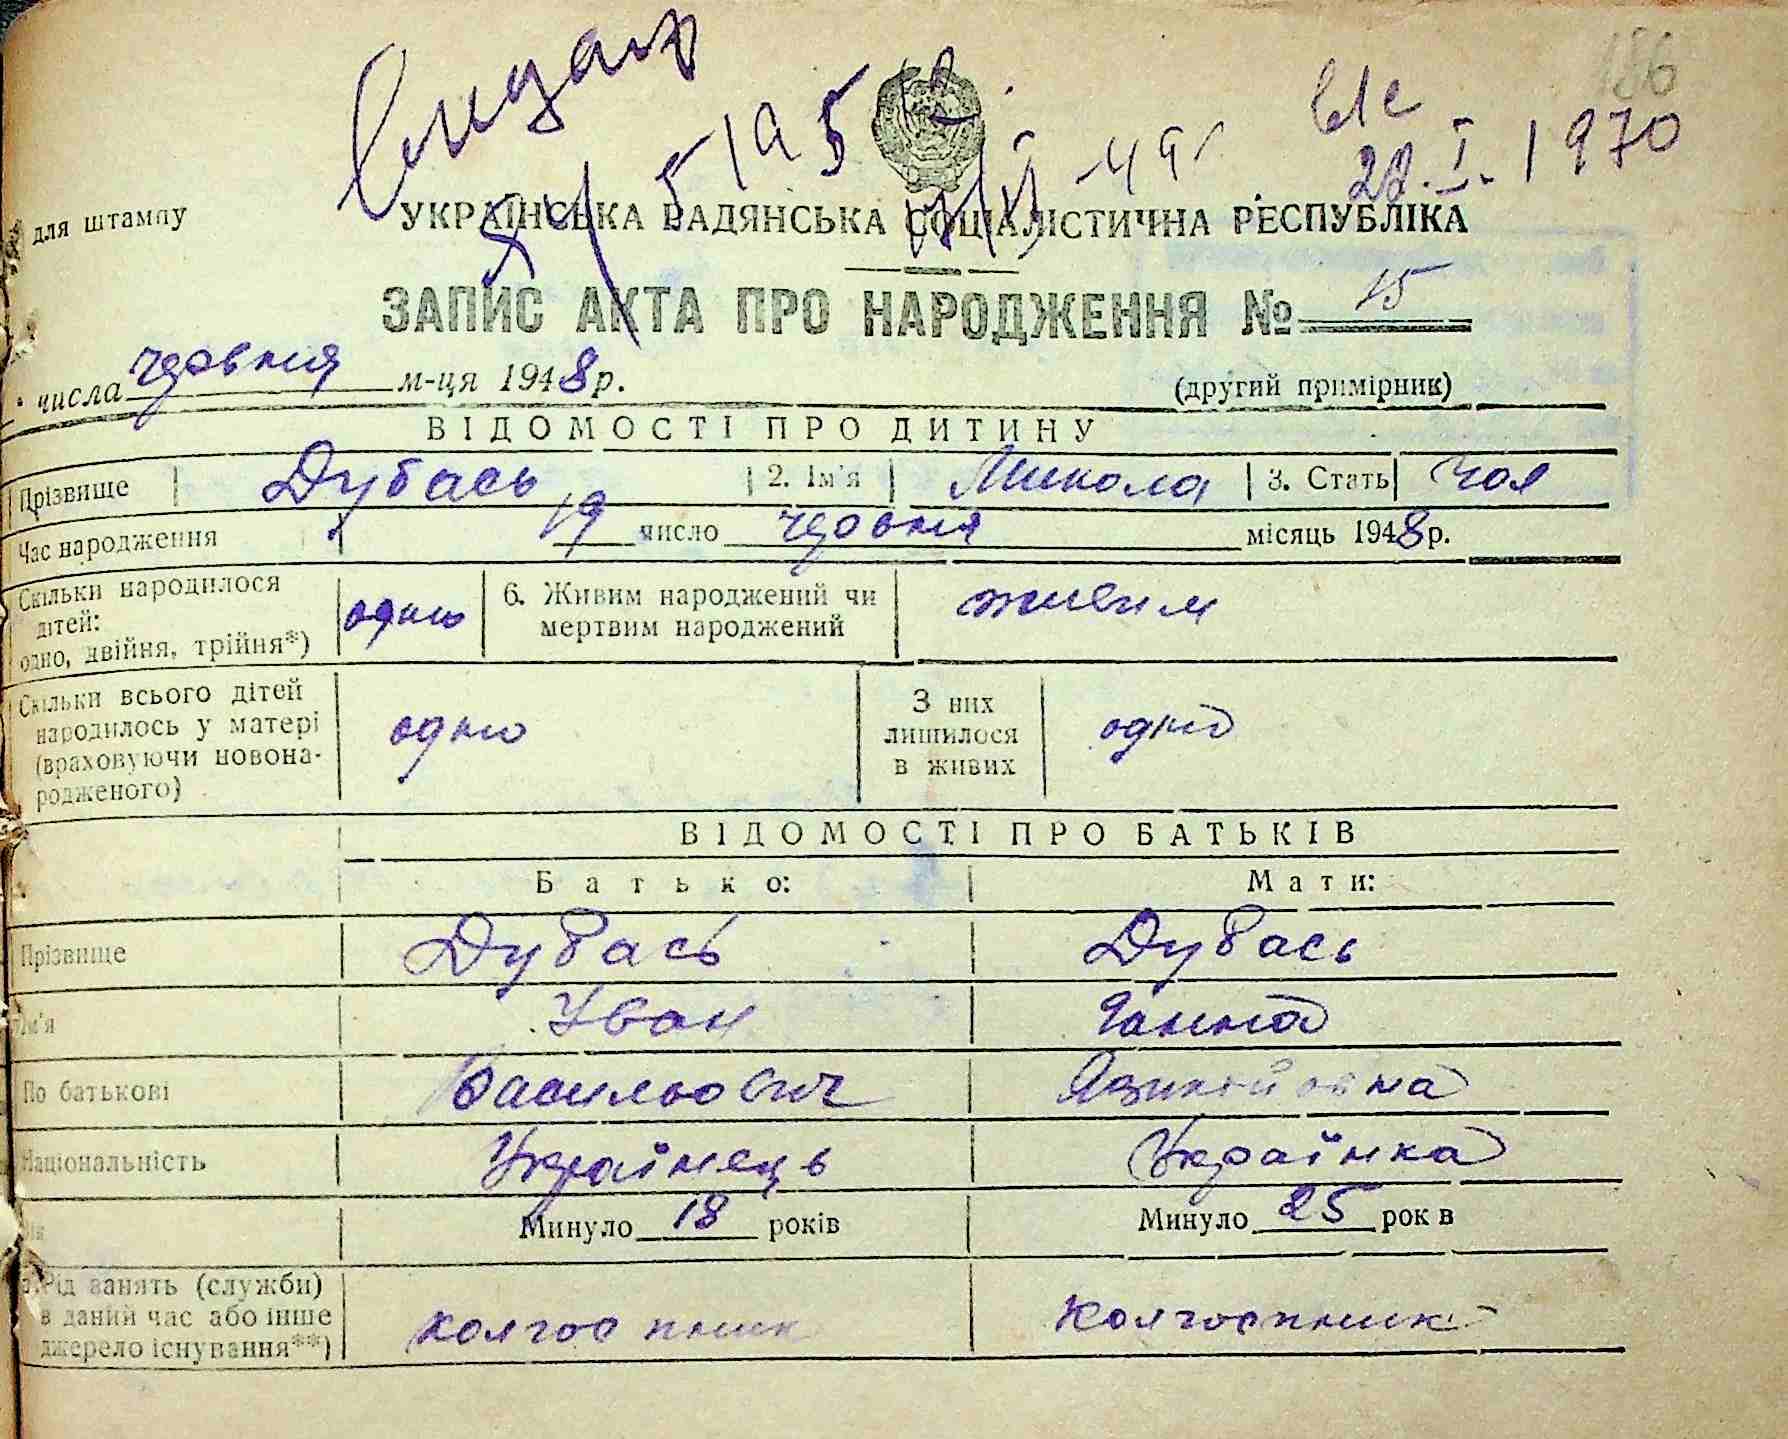 186
для штампу
28.I.1970
УКРАЇНСЬКА РАДЯНСЬКА СОЦІАЛІСТИЧНА РЕСПУБЛІКА
ЗАПИС АКТА ПРО НАРОДЖЕННЯ № 15
числа червня м-ця 1948 р.
(другий примірник)
ВІДОМОСТІ ПРО ДИТИНУ
Прізвище Дубась 2. Ім'я Микола 3. Стать Чол
Час народження 19 число червня місяць 1948 р.
Скільки народилося дітей: одно, двійня, трійня*) одно 6. Живим народжений чи мертвим народжений живим
Скільки всього дітей народилось у матері (враховуючи новонародженого) одно З них лишилося в живих одно
ВІДОМОСТІ ПРО БАТЬКІВ
Батько: Мати:
Прізвище Дубась Дубась
Ім'я Іван Ганна
По батькові Васильович
Національність Українець Українка
Вік Минуло 18 років Минуло 25 рок в
Рід занять (служби) в даний час або інше джерело існування**) колгоспник колгоспник